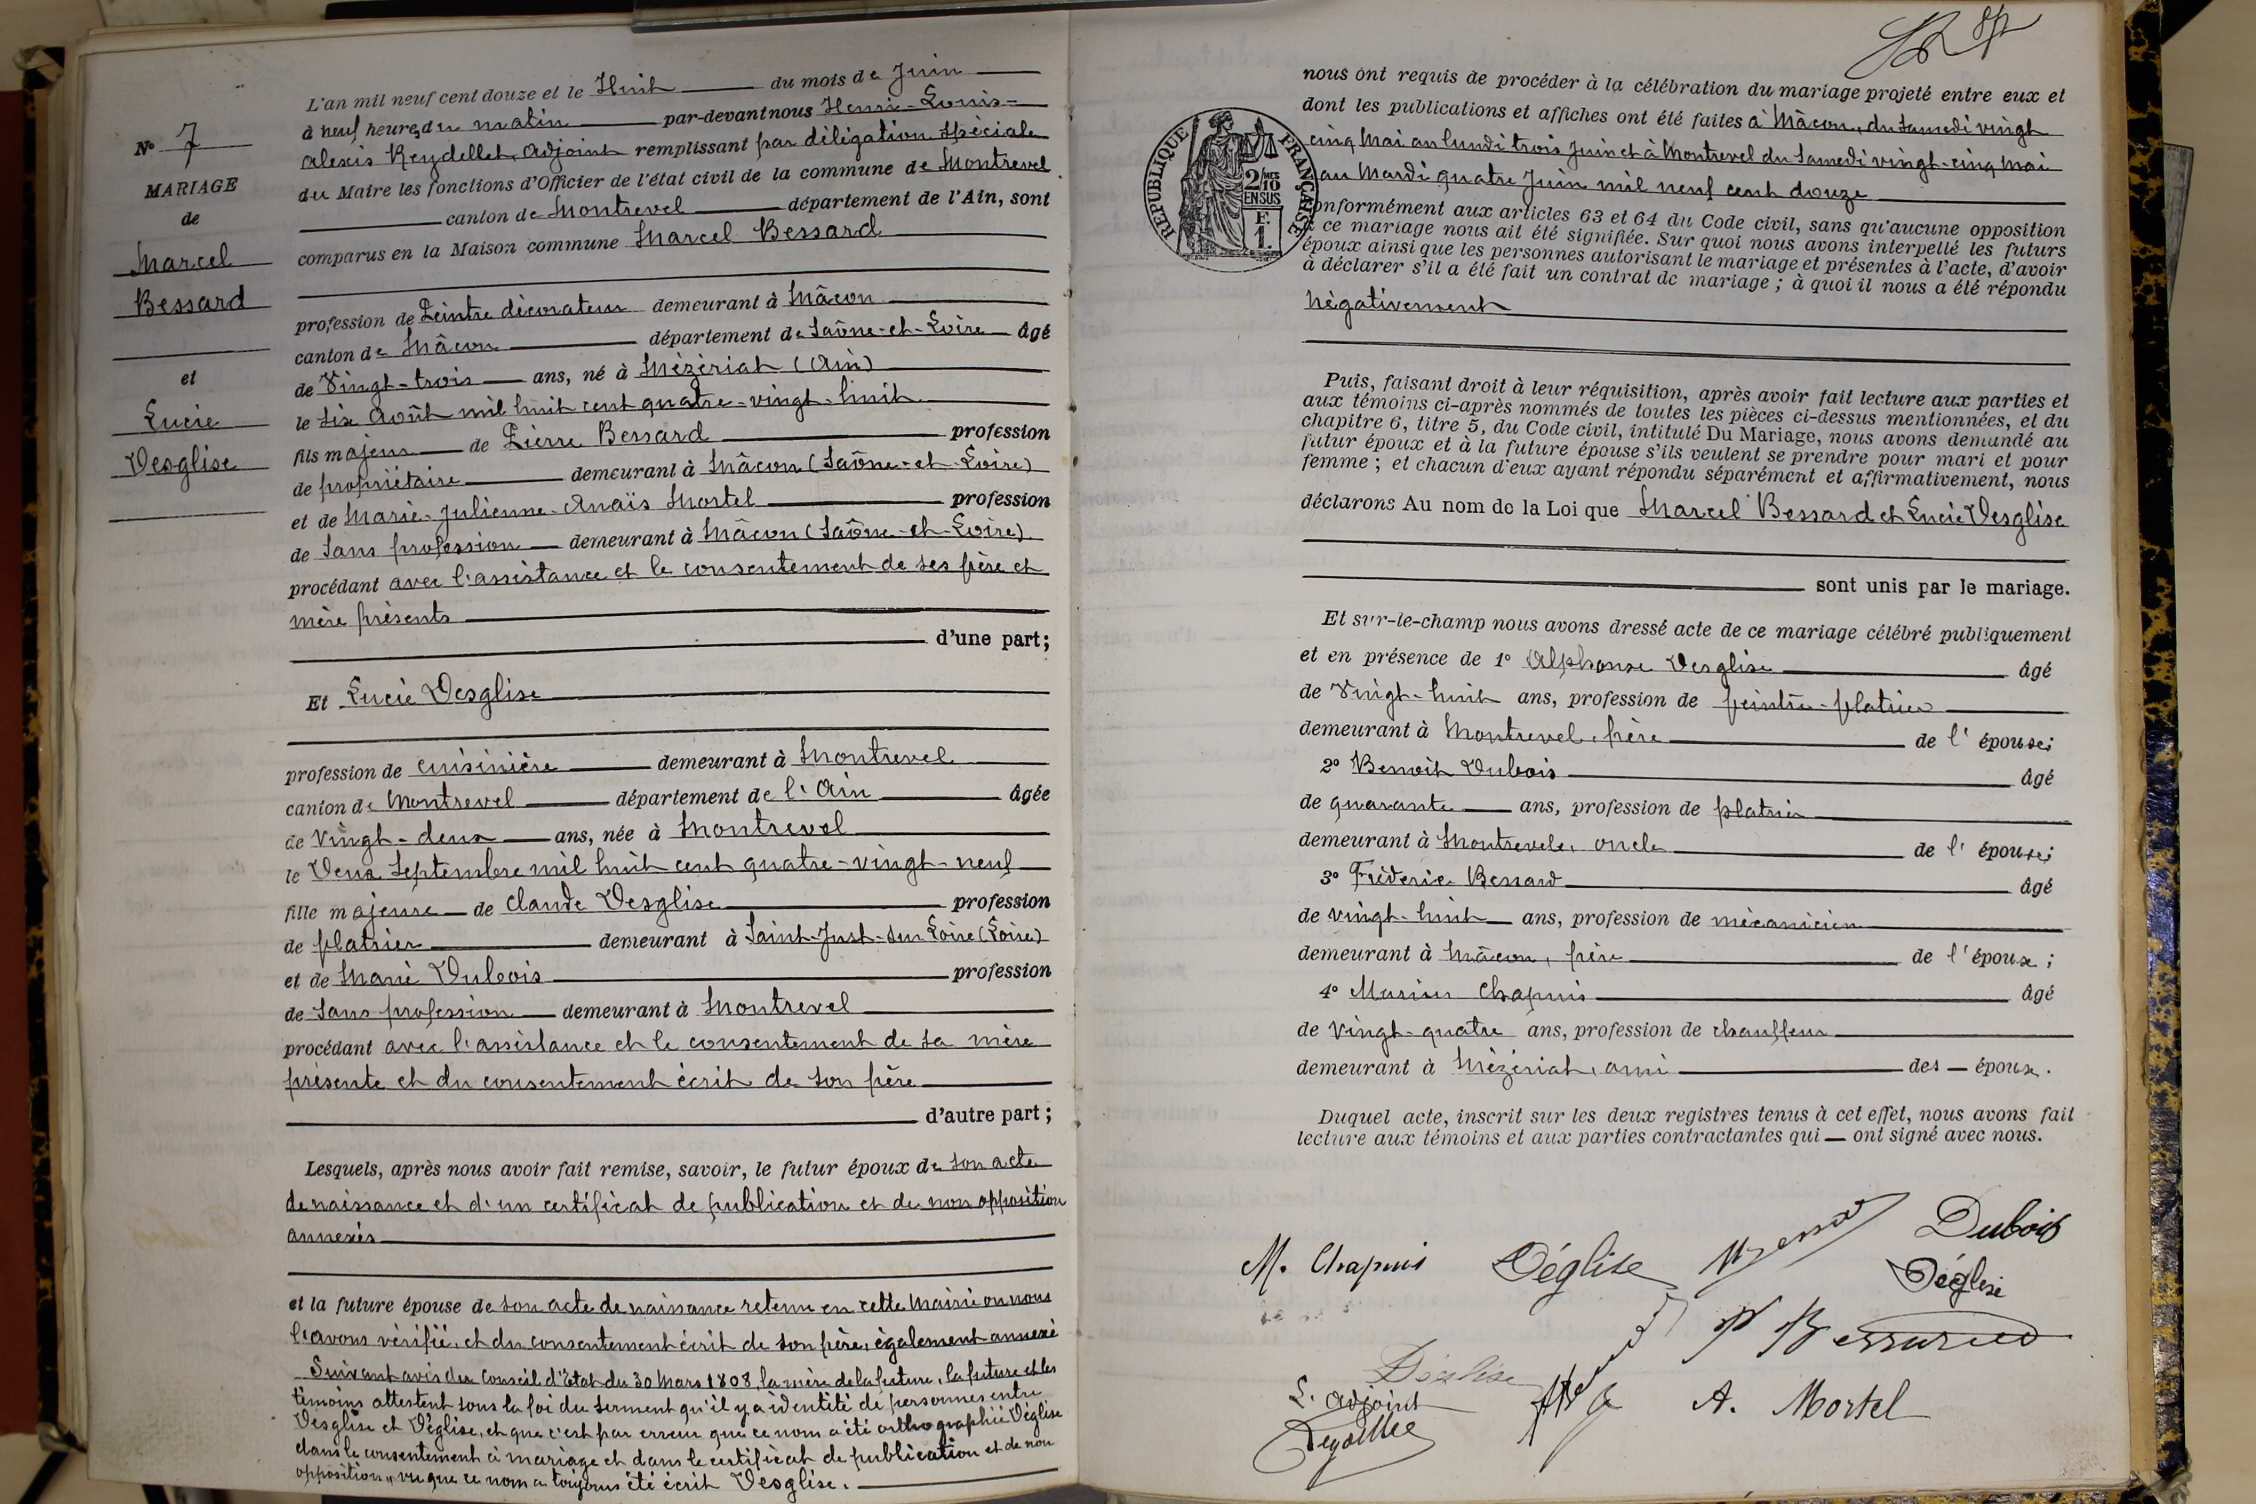 L'an mil neuf cent douze et le Huit du mois de Juin
à neuf heures du matin par-devant nous Henri-Louis-
Alexis Reydellet, Adjoint remplissant par délégation spéciale
du Maire les fonctions d'Officier de l'état civil de la commune de Montrevel
canton de Montrevel département de l'Ain, sont
comparus en la Maison commune Marcel Bessard
profession de Peintre décorateur demeurant à Mâcon
canton de Mâcon département de Saône-et-Loire âgé
de Vingt-trois ans, né à Mézériat (Ain)
le six Août mil huit cent quatre-vingt-huit
fils majeur de Pierre Bessard profession
de propriétaire demeurant à Mâcon (Saône-et-Loire)
et de Marie-Julienne-Anaïs Mortel profession
de Sans profession demeurant à Mâcon (Saône-et-Loire)
procédant avec l'assistance et le consentement de ses père et
mère présents
d'une part;
Et Lucie Desglise
profession de cuisinière demeurant à Montrevel
canton de Montrevel département de l'Ain âgée
de Vingt-deux ans, née à Montrevel
le Deux Septembre mil huit cent quatre-vingt-neuf
fille majeure de Claude Desglise profession
de platrier demeurant à Saint-Just-sur Loire (Loire)
et de Marie Dubois profession
de Sans profession demeurant à Montrevel
procédant avec l'assistance et le consentement de sa mère
présente et du consentement écrit de son père
d'autre part;
Lesquels, après nous avoir fait remise, savoir, le futur époux de son acte
de naissance et d'un certificat de publication et de non opposition
annexés
et la future épouse de son acte de naissance retenu en cette Mairie où nous
l'avons vérifié, et du consentement écrit de son père, également annexé
Suivant avis du Conseil d'Etat du 30 Mars 1808, la mère de la future, la future et les
témoins attestent sous la foi du serment qu'il y a identité de personnes entre
Desglise et Déglise, et que c'est par erreur que ce nom a été orthographié Déglise
dans le consentement à mariage et dans le certificat de publication et de non
opposition, vu que ce nom a toujours été écrit Desglise.
N° 7
MARIAGE
de
Marcel
Bessard
et
Lucie
Desglise
nous ont requis de procéder à la célébration du mariage projeté entre eux et
dont les publications et affiches ont été faites à Mâcon, du Samedi vingt
cinq Mai au lundi trois Juin et à Montrevel du Samedi vingt-cinq Mai
au Mardi quatre Juin mil neuf cent douze
conformément aux articles 63 et 64 du Code civil, sans qu'aucune opposition
à ce mariage nous ait été signifiée. Sur quoi nous avons interpellé les futurs
époux ainsi que les personnes autorisant le mariage et présentes à l'acte, d'avoir
à déclarer s'il a été fait un contrat de mariage; à quoi il nous a été répondu
négativement
Puis, faisant droit à leur réquisition, après avoir fait lecture aux parties et
aux témoins ci-après nommés de toutes les pièces ci-dessus mentionnées, et du
chapitre 6, titre 5, du Code civil, intitulé Du Mariage, nous avons demandé au
futur époux et à la future épouse s'ils veulent se prendre pour mari et pour
femme; et chacun d'eux ayant répondu séparément et affirmativement, nous
déclarons Au nom de la Loi que Marcel Bessard et Lucie Desglise
sont unis par le mariage.
Et sur-le-champ nous avons dressé acte de ce mariage célébré publiquement
et en présence de 1° Alphonse Desglise âgé
de Vingt-huit ans, profession de peintre-platrier
demeurant à Montrevel, frère de l'épouse;
2° Benoit Dubois âgé
de quarante ans, profession de platrier
demeurant à Montrevel, oncle de l'épouse;
3° Fréderic Bessard âgé
de vingt-huit ans, profession de mécanicien
demeurant à Mâcon, frère de l'époux;
4° Marius Chapuis âgé
de Vingt-quatre ans, profession de chauffeur
demeurant à Mézériat, ami des époux.
Duquel acte, inscrit sur les deux registres tenus à cet effet, nous avons fait
lecture aux témoins et aux parties contractantes qui ont signé avec nous.
RÉPUBLIQUE FRANÇAISE
2/10 MES
EN SUS
F. 1.
M. Chapuis Déglise M Bessard Dubois
Déglise
P Bessard
Déglise
L'Adjoint A. Mortel
Reydellet